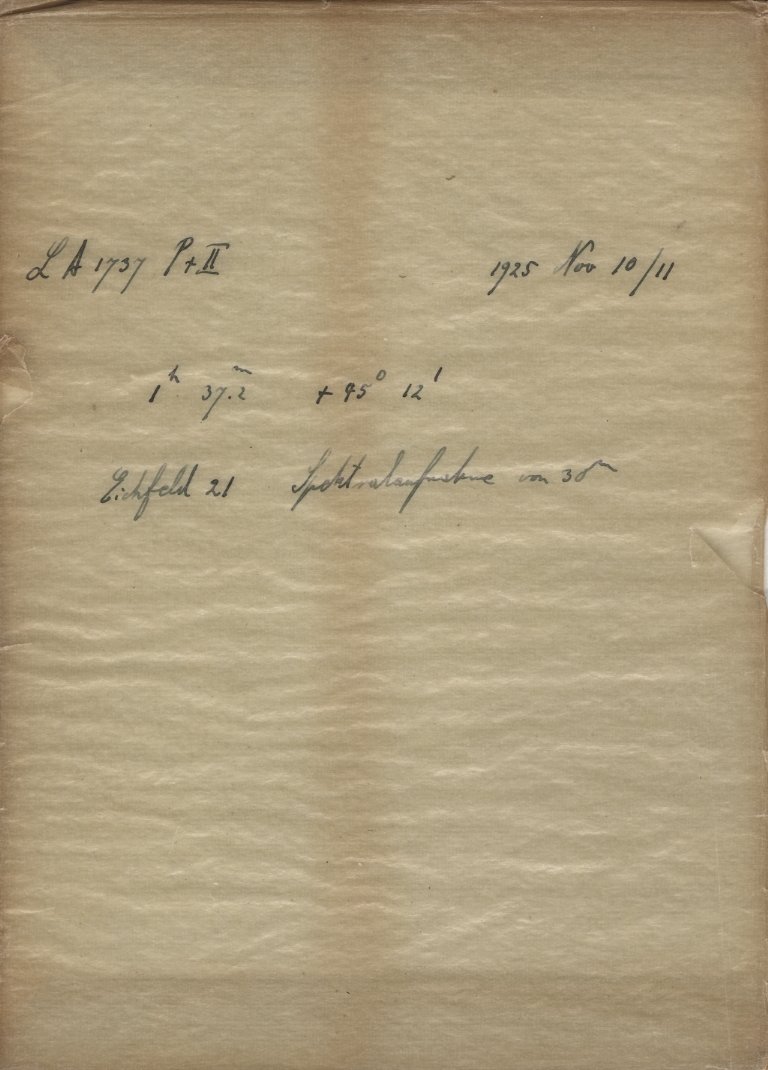 LA 1737 P+II 1925 Nov 10/11
1ʰ 37.ᵐ2 + 45° 12'
Eichfeld 21 Spektralaufnahme von 30ᵐ